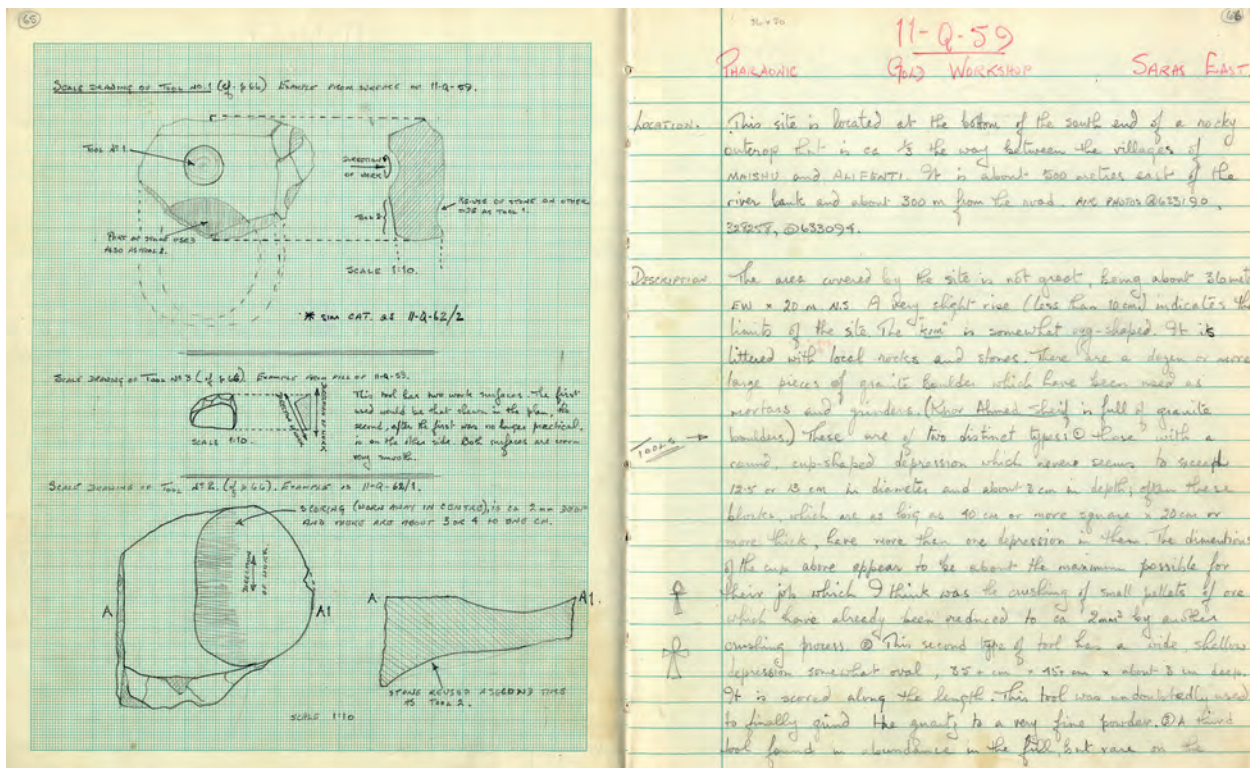 65
SCALE DRAWING OF TOOL NO. 1 (cf. p 66) EXAMPLE FROM SURFACE OF 11-Q-59.
TOOL Nº 1
DIRECTION
OF WORK
TOOL 2
REUSE OF STONE ON OTHER
SIDE AS TOOL 1.
PART OF STONE USED
ALSO AS TOOL 2.
SCALE 1:10.
* SIM CAT. AS 11-Q-62/2
SCALE DRAWING OF TOOL Nº 3 (cf p 66). EXAMPLE FROM FILL OF 11-Q-59.
This tool has two work surfaces. The first
used would be that shown in the plan, the
second, after the first was no longer practical,
is on the other side. Both surfaces are worn
very smooth.
SCALE 1:10.
DIRECTION OF WORK
SCALE DRAWING OF TOOL Nº 2. (cf p 66). EXAMPLE IS 11-Q-62/1.
SCORING (WORN AWAY IN CENTRE), IS ca 2 mm DEEP
AND THERE ARE ABOUT 3 OR 4 TO ONE CM.
DIRECTION
OF WORK
A
A1
A
A1.
STONE REUSED A SECOND TIME
AS TOOL 2.
SCALE 1:10
66
11-Q-59
PHARAONIC GOLD WORKSHOP SARAS EAST.
LOCATION. This site is located at the bottom of the south end of a rocky
outcrop that is ca ⅓ the way between the villages of
MAISHU and ALIFENTI. It is about 500 metres east of the
river bank and about 300 m from the road. AIR PHOTOS @633190,
328258, @633094.
DESCRIPTION The area covered by the site is not great, being about
EW × 20 m NS. A very slight rise (less than 10 cm) indicates the
limits of the site. The "kom" is somewhat egg-shaped. It is
littered with local rocks and stones. There are a dozen or more
large pieces of granite boulder which have been used as
mortars and grinders. (Khor Ahmed Sherif is full of granite
boulders.) These are of two distinct types: ① those with a
TOOLS →
round, cup-shaped depression which never seems to exceed
12.5 or 13 cm in diameter and about 8 cm in depth; often these
blocks, which are as big as 40 cm or more square × 20 cm or
more thick, have more than one depression in them. The dimentions
of the cup above appear to be about the maximum possible for
their job which I think was the crushing of small pellets of ore
which have already been reduced to ca 2mm² by another
crushing process. ② This second type of tool has a wide shallow
depression somewhat oval, 35+ cm × 45+ cm × about 8 cm deep.
It is scored along the length. This tool was undoubtedly used
to finally grind the quartz to a very fine powder. ③ A third
tool found in abundance in the fill, but rare on the